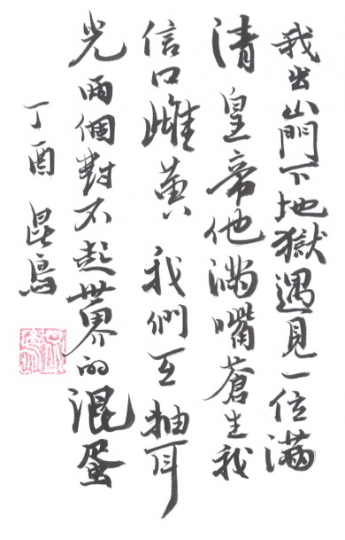 我出山門下地獄遇見一位滿
清皇帝他滿嘴蒼生我
信口雌黃 我們互抽耳
光兩個對不起世界的混蛋
丁酉 昆鳥